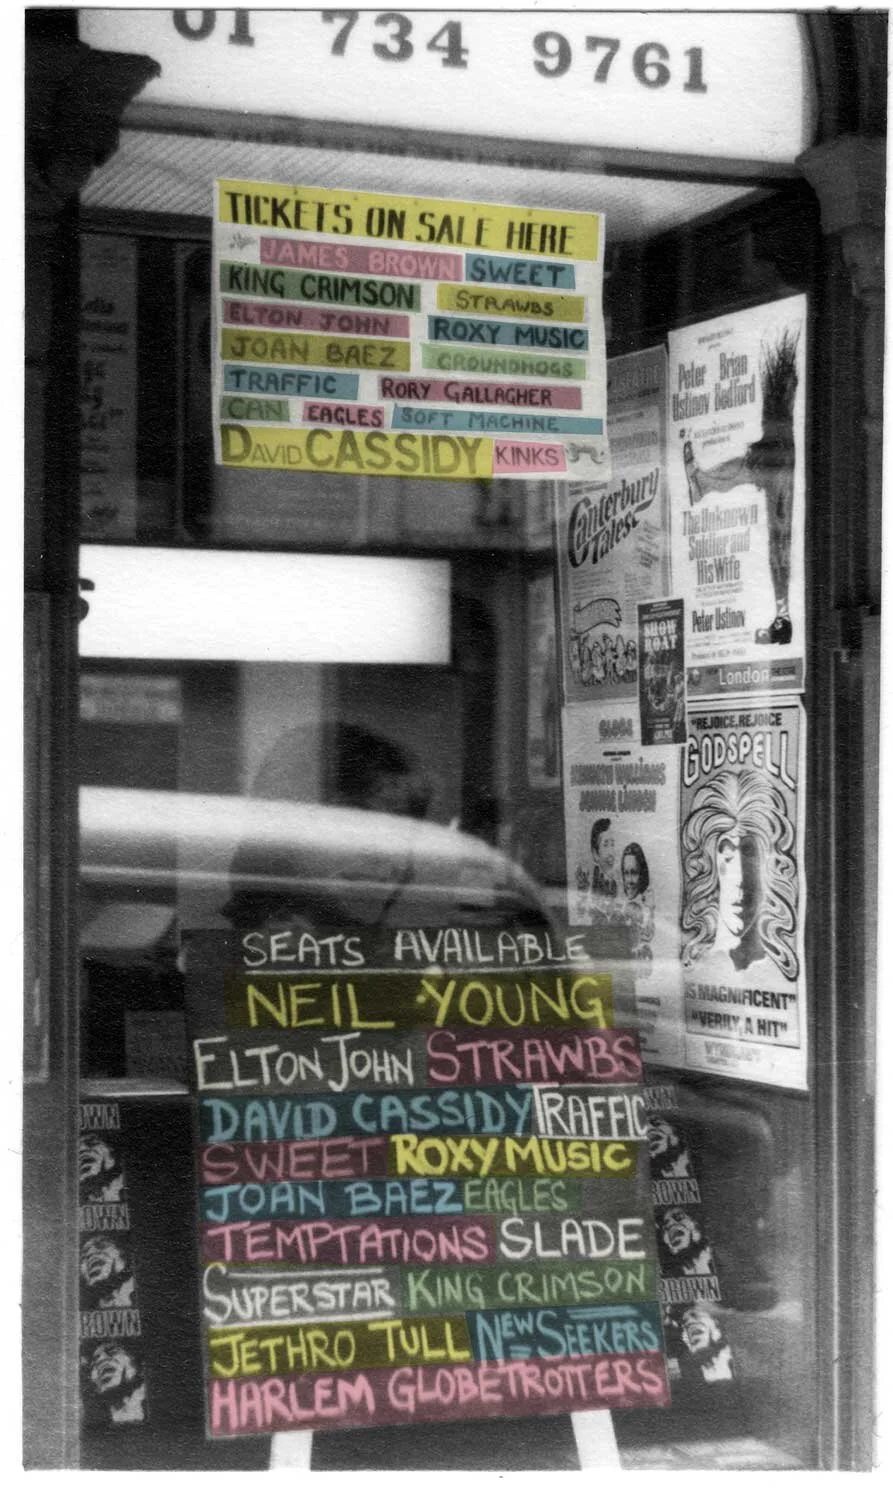 01 734 9761
TICKETS ON SALE HERE
JAMES BROWN SWEET
KING CRIMSON STRAWBS
ELTON JOHN ROXY MUSIC
JOAN BAEZ GROUNDHOGS
TRAFFIC RORY GALLAGHER
CAN EAGLES SOFT MACHINE
DAVID CASSIDY KINKS
Peter Ustinov Brian Bedford
The Unknown
Soldier and
His Wife
Peter Ustinov
London
Canterbury
Tales
SHOW
BOAT
"REJOICE, REJOICE
GODSPELL
IS MAGNIFICENT"
"VERILY, A HIT"
SEATS AVAILABLE
NEIL YOUNG
ELTON JOHN STRAWBS
DAVID CASSIDY TRAFFIC
SWEET ROXY MUSIC
JOAN BAEZ EAGLES
TEMPTATIONS SLADE
SUPERSTAR KING CRIMSON
JETHRO TULL NEW SEEKERS
HARLEM GLOBETROTTERS
OWN
OWN
ROWN
WN
ROWN
BROWN